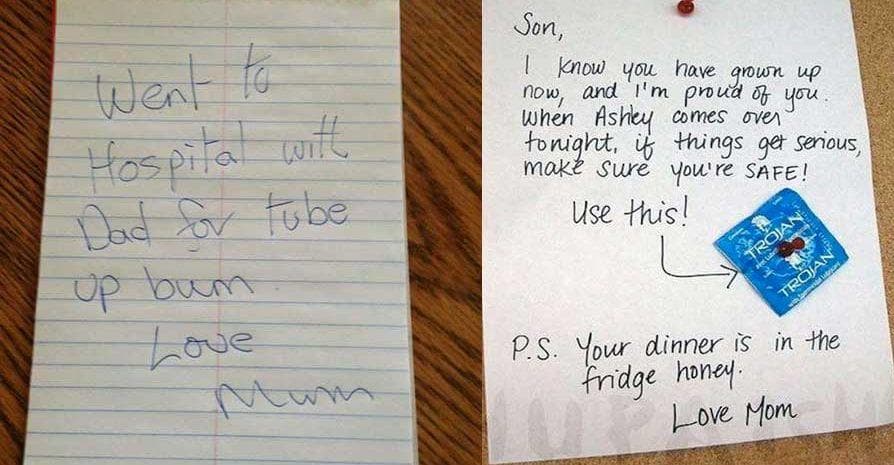 Went to
Hospital with
Dad for tube
up bum.
Love
Mum
Son,
I know you have grown up
now, and I'm proud of you.
When Ashley comes over
tonight, if things get serious,
make sure you're SAFE!
Use this!
TROJAN
TROJAN
P.S. Your dinner is in the
fridge honey.
Love Mom